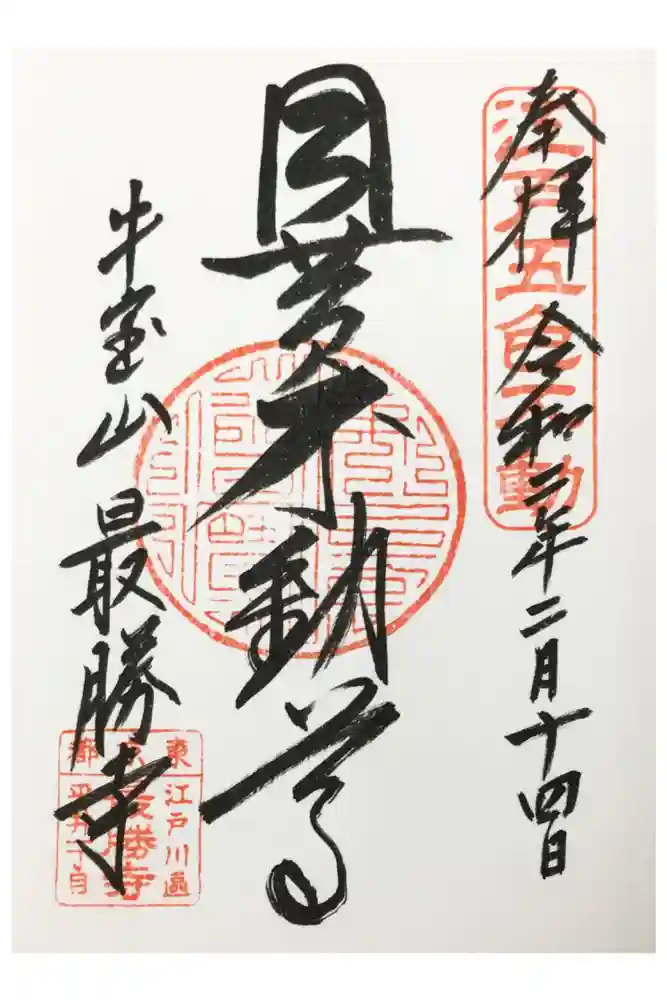 奉拝 令和二年二月十四日
江戸五色不動
目黄不動尊
牛宝山 最勝寺
東京都
江戸川區
最勝寺
平井一丁目